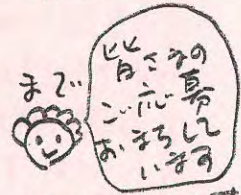 まで
皆さまの
ご応募
おまちして
います